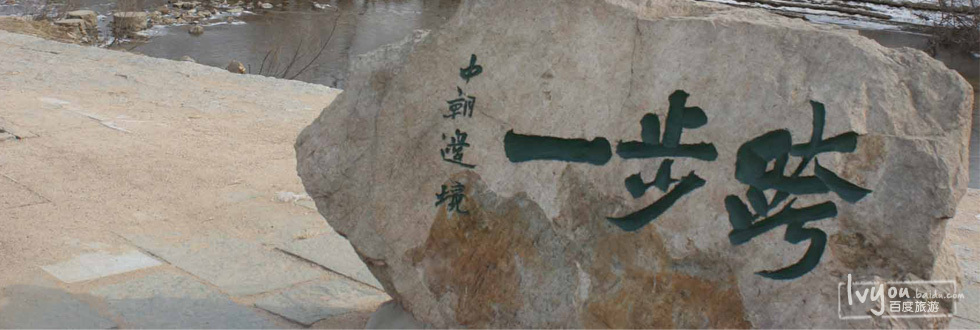 中朝邊境
一步跨
lvyou.baidu.com
百度旅游